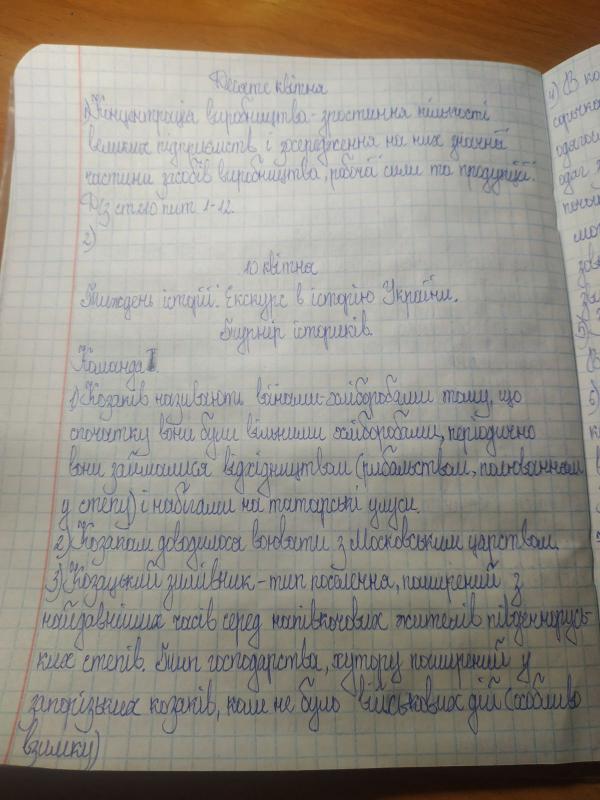 Десяте квітня
1) Концентрація виробництва - зростання кількості
великих підприємств і зосередження на них значної
частини засобів виробництва, робочої сили та продукції.
Дз ст 110 пит 1-12.
2)
10 квітня
Тиждень історії. Екскурс в історію України.
Турнір істориків.
Команда 1.
1) Козаків називають воїнами-хліборобами тому, що
спочатку вони були вільними хліборобами, періодично
вони займалися відхідництвом (рибальством, полюванням
у степу) і набігами на татарські улуси.
2) Козакам доводилося воювати з Московським царством.
3) Козацький зимівник - тип поселення, поширений з
найдавніших часів серед напівкочових жителів південнорусь-
ких степів. Тип господарства, хутору поширений у
запорізьких козаків, коли не було військових дій (особливо
взимку)
4) В ко
одяг
5)